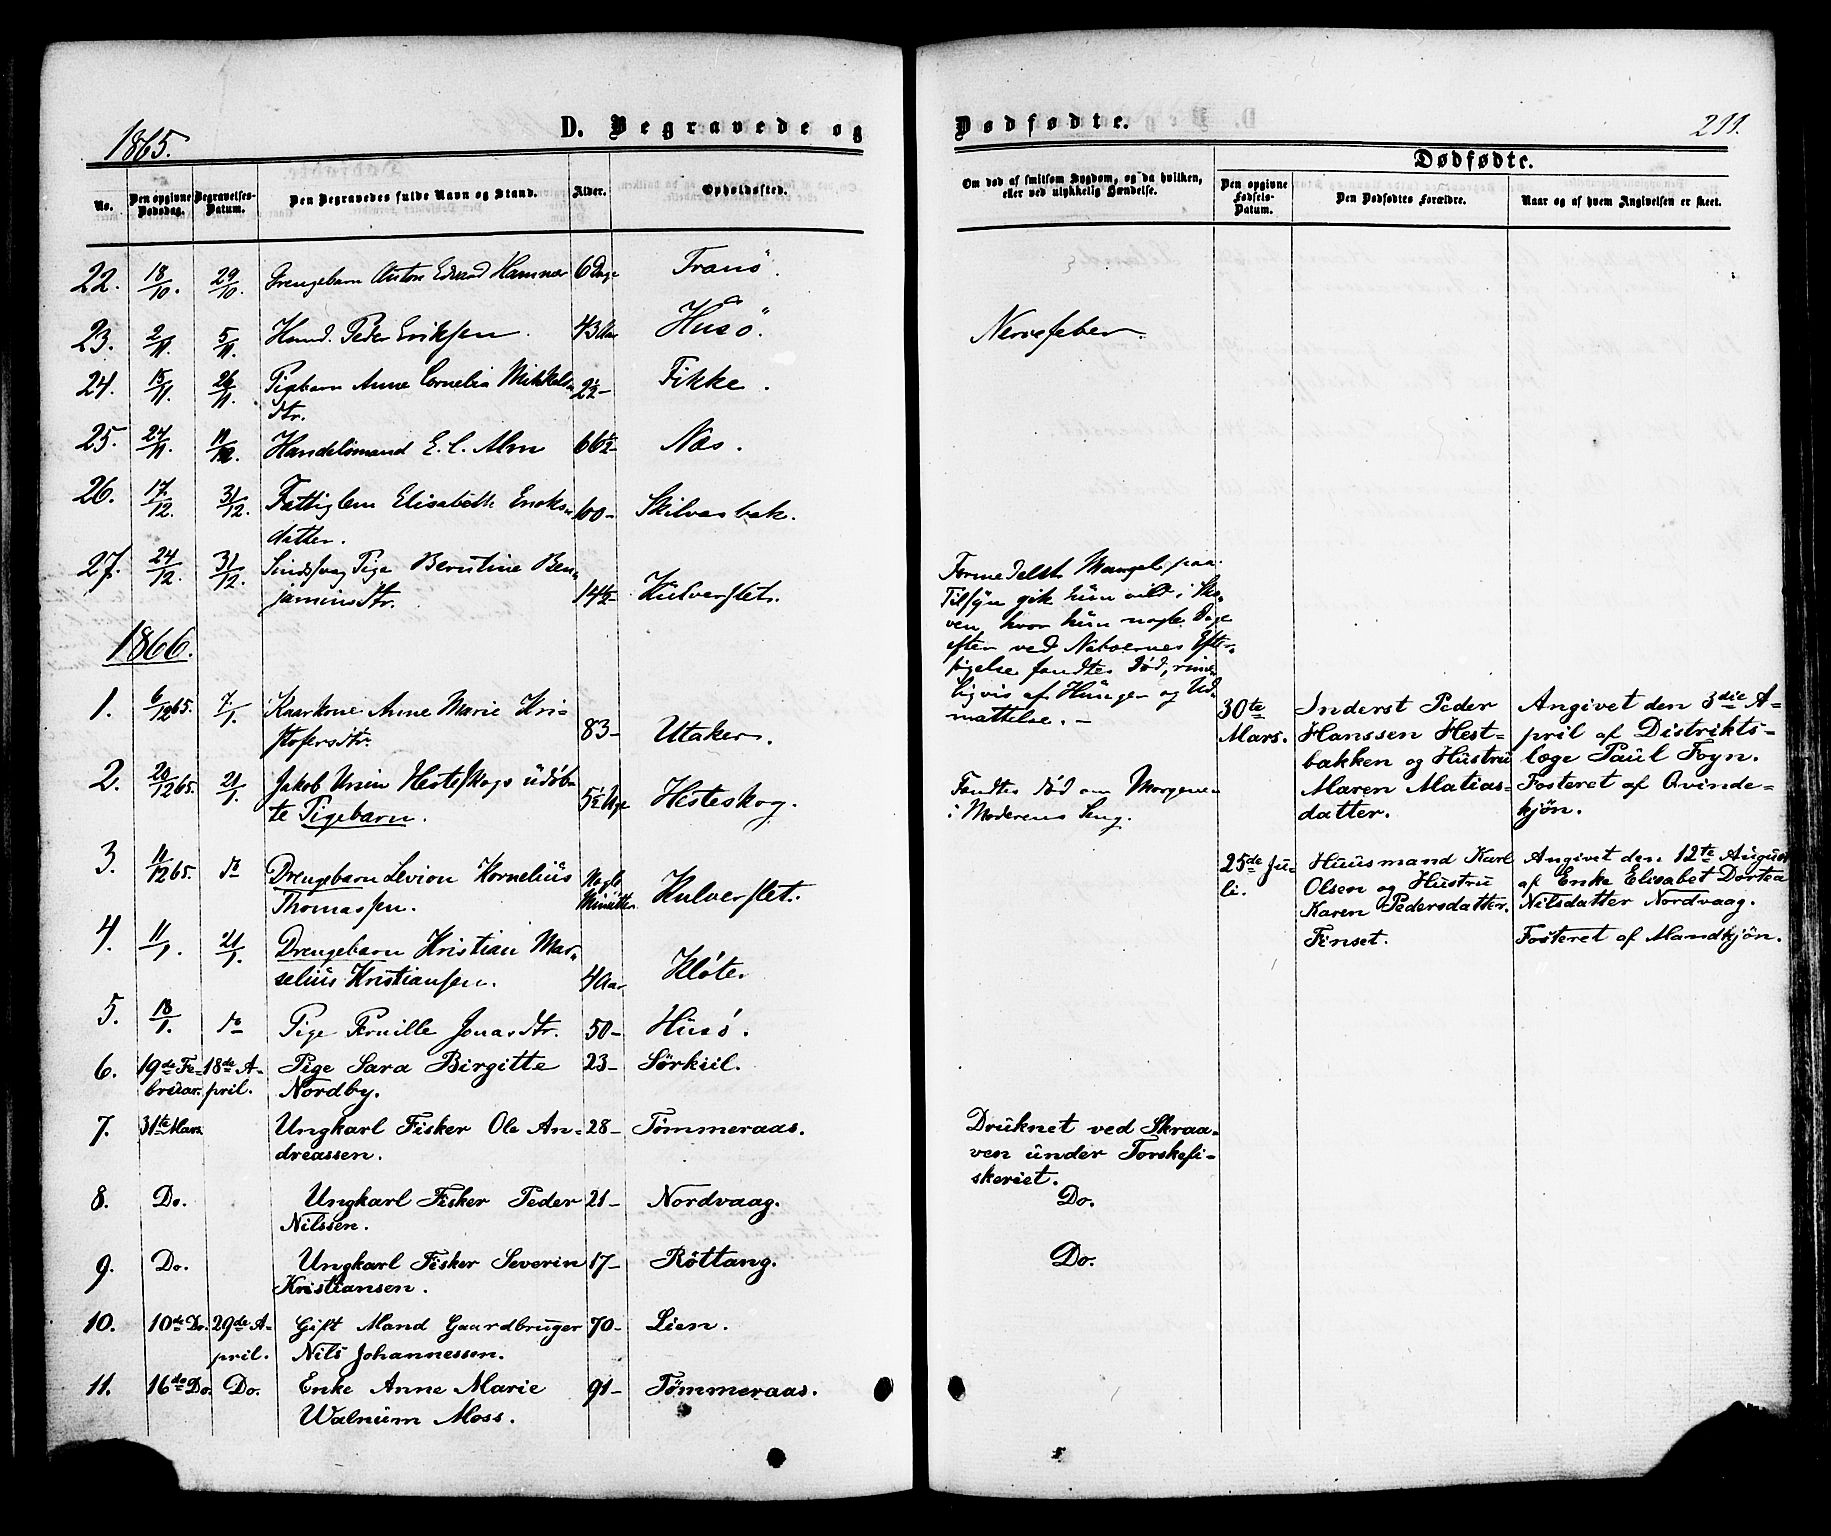 1865.
D. Begravede og
No.
Den opgivne Dødsdag.
Begravelses-Datum.
Den Begravedes fulde Navn og Stand.
Alder.
Opholdssted.
22. 18/10. 29/10. Drengebarn Anton Edvard Hammer 6 Dage Tranö.
23. 2/11. 5/11. Huusmd. Peder Eriksen. 43 Aar Husö.
24. 15/11. 26/11. Pigebarn Anne Cornelia Mikkels- 2½- Fikke.
dtr.
25. 27/11. 11/12. Handelsmand E. C. Alm 66½- Næs.
26. 17/12. 31/12. Fattiglem Elisabeth Enoks- 60- Skilvasbak.
datter.
27. 24/12. 31/12. Sindssvag Pige Berntine Ben-
jaminsdtr. 14½- Kulverslet.
1866.
1. 6/12 65. 7/1. Kaarkone Anne Marie Kri-
stofersdtr. 83- Utaker.
2. 20/12 65. 21/1. Jakob Unin Hesteskogs udøb-
te Pigebarn. 5½ Uge Hesteskog.
3. 11/12 65. do Drengebarn Levion Kornelius Nogle
Thomassen. Minutter Kulverslet.
4. 11/1. 21/1. Drengebarn Kristian Mar-
selius Kristiansen. 4 Aar Kløte.
5. 13/1. do Pige Pernille Jonasdtr. 50- Husö.
6. 19de Fe- 18de A- Pige Sara Birgitte 23- Sörkiil.
bruar. pril. Nordby.
7. 31te Mars. Ungkarl Fisker Ole An- 28- Tömmeraas.
dreassen.
8. Do. Ungkarl Fisker Peder 21- Nordvaag.
Nilssen.
9. Do. Ungkarl Fisker Severin 17- Röttang.
Kristiansen.
10. 10de Do. 29de A- Gift Mand Gaardbruger 70- Lien.
pril. Nils Johannessen.
11. 16de Do. Do. Enke Anne Marie 91- Tömmeraas.
Walnum Moss.
Dødfødte.
211.
Om død af smitsom Sygdom, og da hvilken,
eller ved ulykkelig Hændelse.
Dødfødte.
Den opgivne Fødsels-Datum.
Den Dødfødtes Forældre.
Naar og af hvem Angivelsen er skeet.
Nervefeber.
Formedelst Mangel paa
Tilsyn gik hun vild i Sko-
ven, hvor hun nogle Dage
efter ved Naboernes Efter-
søgelse fandtes død, rime-
ligvis af Hunger og Ud-
mattelse. -
Fandtes død om Morgenen
i Moderens Seng.
Druknet ved Skraa-
ven under Torskefi-
skeriet.
Do.
Do.
30te
Mars.
Inderst Peder
Hanssen Hest-
bakken og Hustru
Maren Matias-
datter.
Angivet den 3die A-
pril af Distrikts-
læge Paul Foyn.
Fosteret af Qvinde-
kjön.
25de Ju-
li.
Huusmand Karl
Olsen og Hustru
Karen Pedersdatter.
Finset.
Angivet den 12te August
af Enke Elisabet Dortea
Nilsdatter Nordvaag.
Fosteret af Mandkjön.